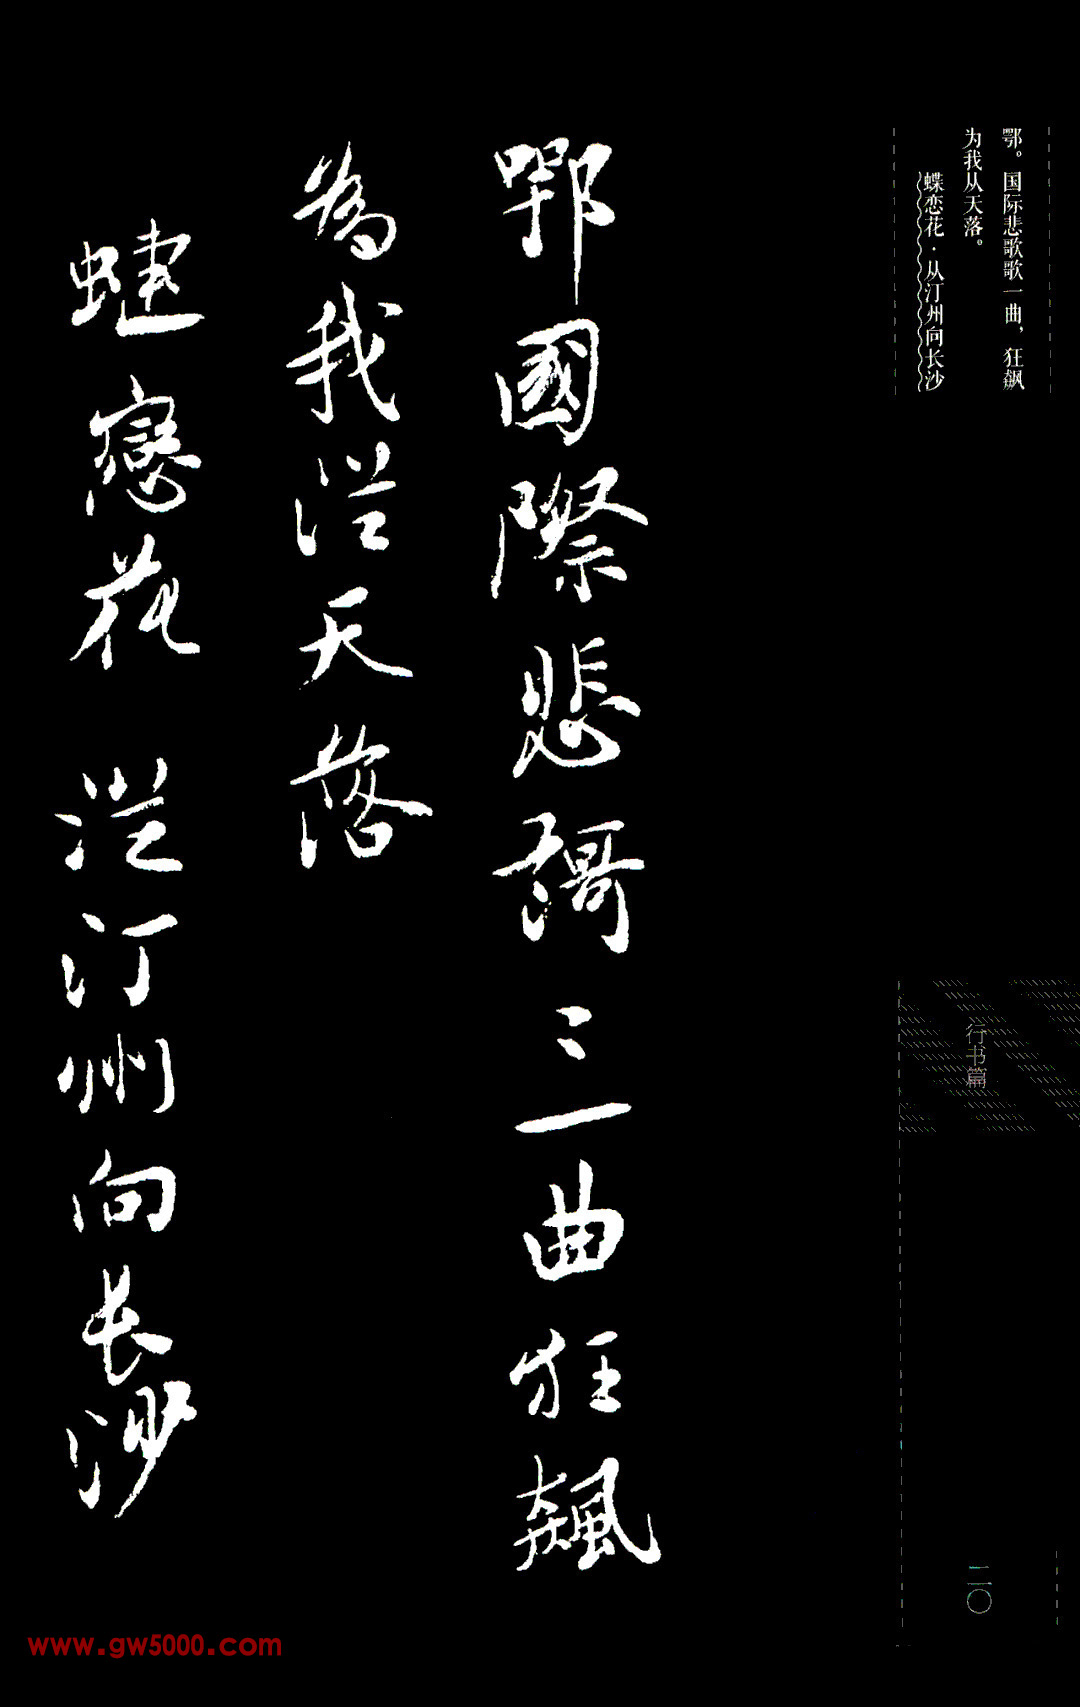 鄂。国际悲歌歌一曲，狂飙
为我从天落。
蝶恋花·从汀州向长沙
行书篇
二〇
鄂國際悲謌〻一曲狂飆
為我從天落
蝶戀花 從汀州向长沙
www.gw5000.com